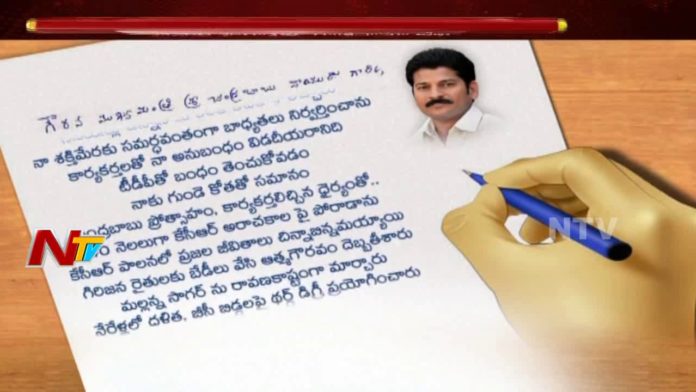 గౌరవ ముఖ్యమంత్రి శ్రీ చంద్రబాబు నాయుడు గారు,
నా శక్తిమేరకు సమర్ధవంతంగా బాధ్యతలు నిర్వర్తించాను
కార్యకర్తలతో నా అనుబంధం విడదీయరానిది
టీడీపీతో బంధం తెంచుకోవడం
నాకు గుండె కోతతో సమానం
ప్రోత్సాహం, కార్యకర్తలిచ్చిన ధైర్యంతో..
నెలలుగా కేసీఆర్ అరాచకాల పై పోరాడాను
కేసీఆర్ పాలనలో ప్రజల జీవితాలు చిన్నాభిన్నమయ్యాయి
గిరిజన రైతులకు బేడీలు వేసి ఆత్మగౌరవం దెబ్బతీశారు
మల్లన్న సాగర్ ను రావణకాష్టంగా మార్చారు
నేరేళ్లలో దళిత, బీసీ బిడ్డలపై థర్డ్ డిగ్రీ ప్రయోగించారు
NTV
NTV